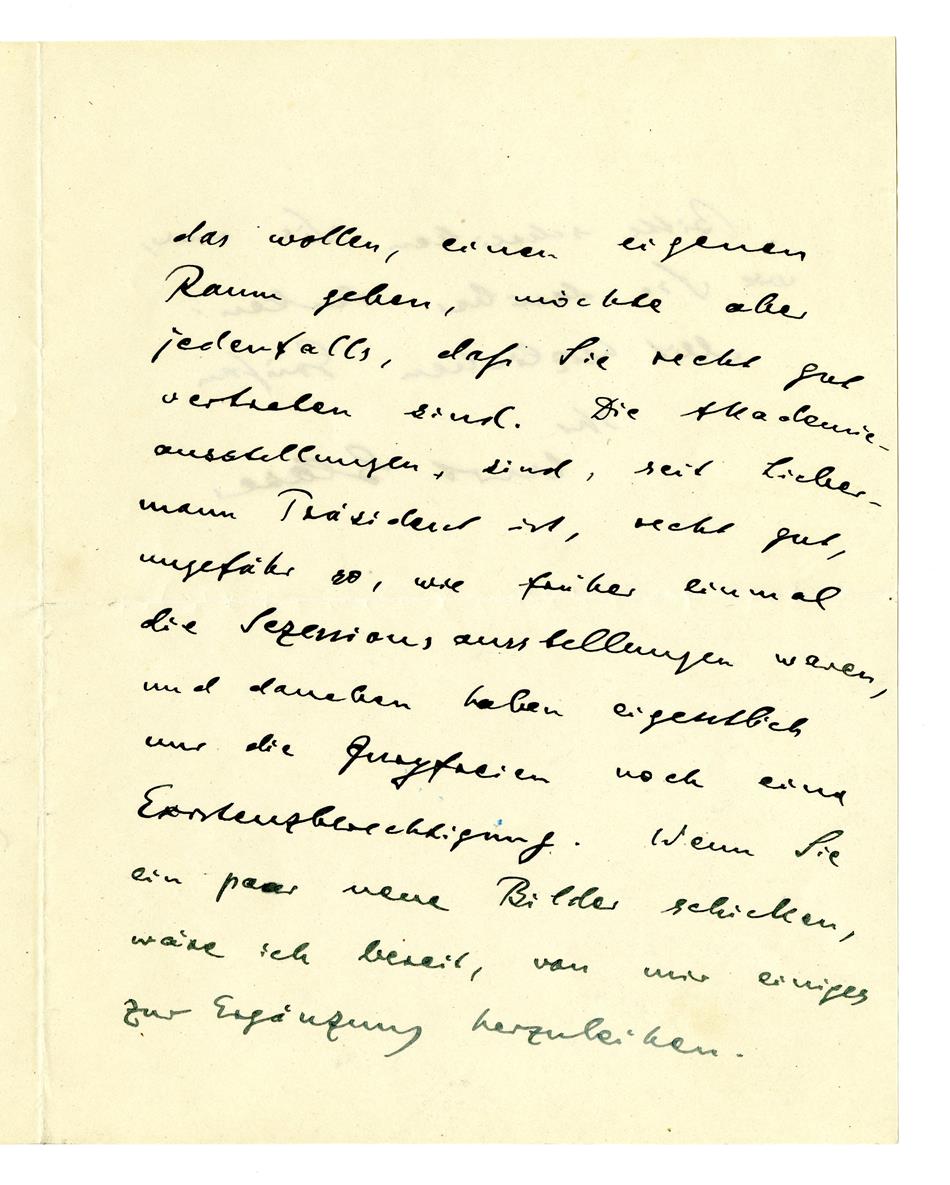 das wollen, einen eigenen
Raum geben, möchte aber
jedenfalls, daß Sie recht gut
vertreten sind. Die Akademie-
ausstellungen, sind, seit Lieber-
mann Präsident ist, recht gut,
ungefähr so, wie früher einmal
die Sezessionsausstellungen waren,
und daneben haben eigentlich
nur die Juryfreien noch eine
Existenzberechtigung. Wenn Sie
ein paar neue Bilder schicken,
wäre ich bereit, von mir einiges
zur Ergänzung herzuleihen.